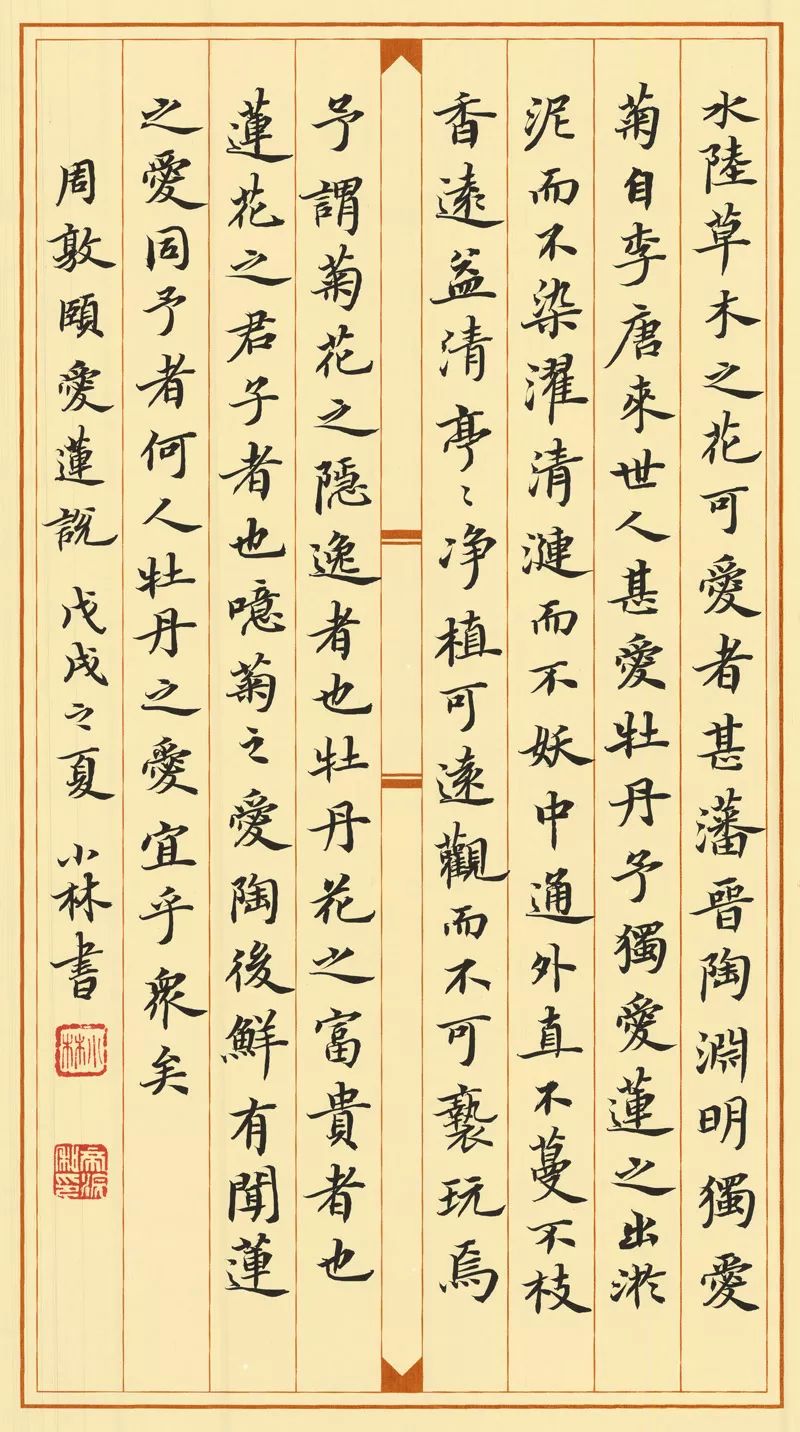 水陸草木之花可愛者甚藩晉陶淵明獨愛
菊自李唐來世人甚愛牡丹予獨愛蓮之出淤
泥而不染濯清漣而不妖中通外直不蔓不枝
香遠益清亭〻净植可遠觀而不可褻玩焉
予謂菊花之隱逸者也牡丹花之富貴者也
蓮花之君子者也噫菊之愛陶後鮮有聞蓮
之愛同予者何人牡丹之愛宜乎衆矣
周敦頤愛蓮説 戊戌之夏 小林書
小林